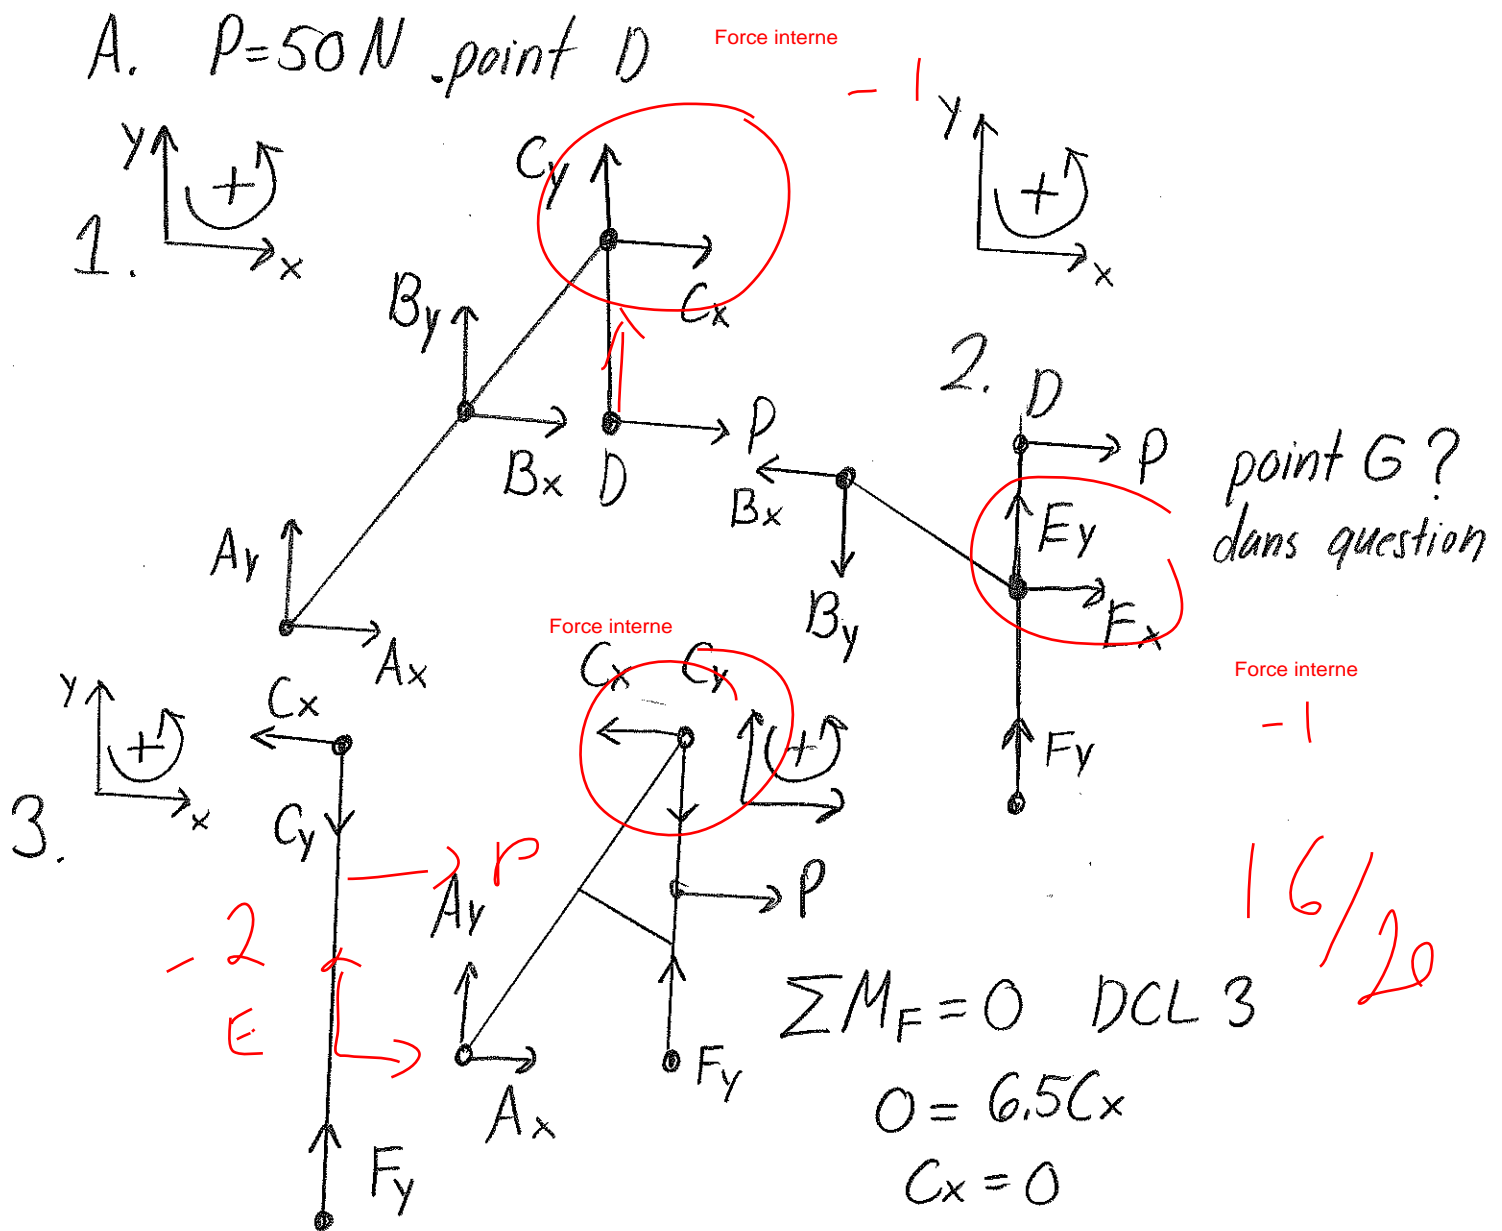 A. P=50N .point D
Force interne
-1
y
+
x
1.
Cy
Cx
By
Bx
D
P
Ay
Ax
y
+
x
2.
D
P
Ey
Fx
Bx
By
Fy
point G?
dans question
Force interne
-1
Force interne
3.
y
+
x
Cx
Cy
P
-2
E
Fy
Cx
Cy
+
P
Ay
Ax
Fy
16/20
ΣM_F = 0 DCL 3
0 = 6.5Cx
Cx = 0